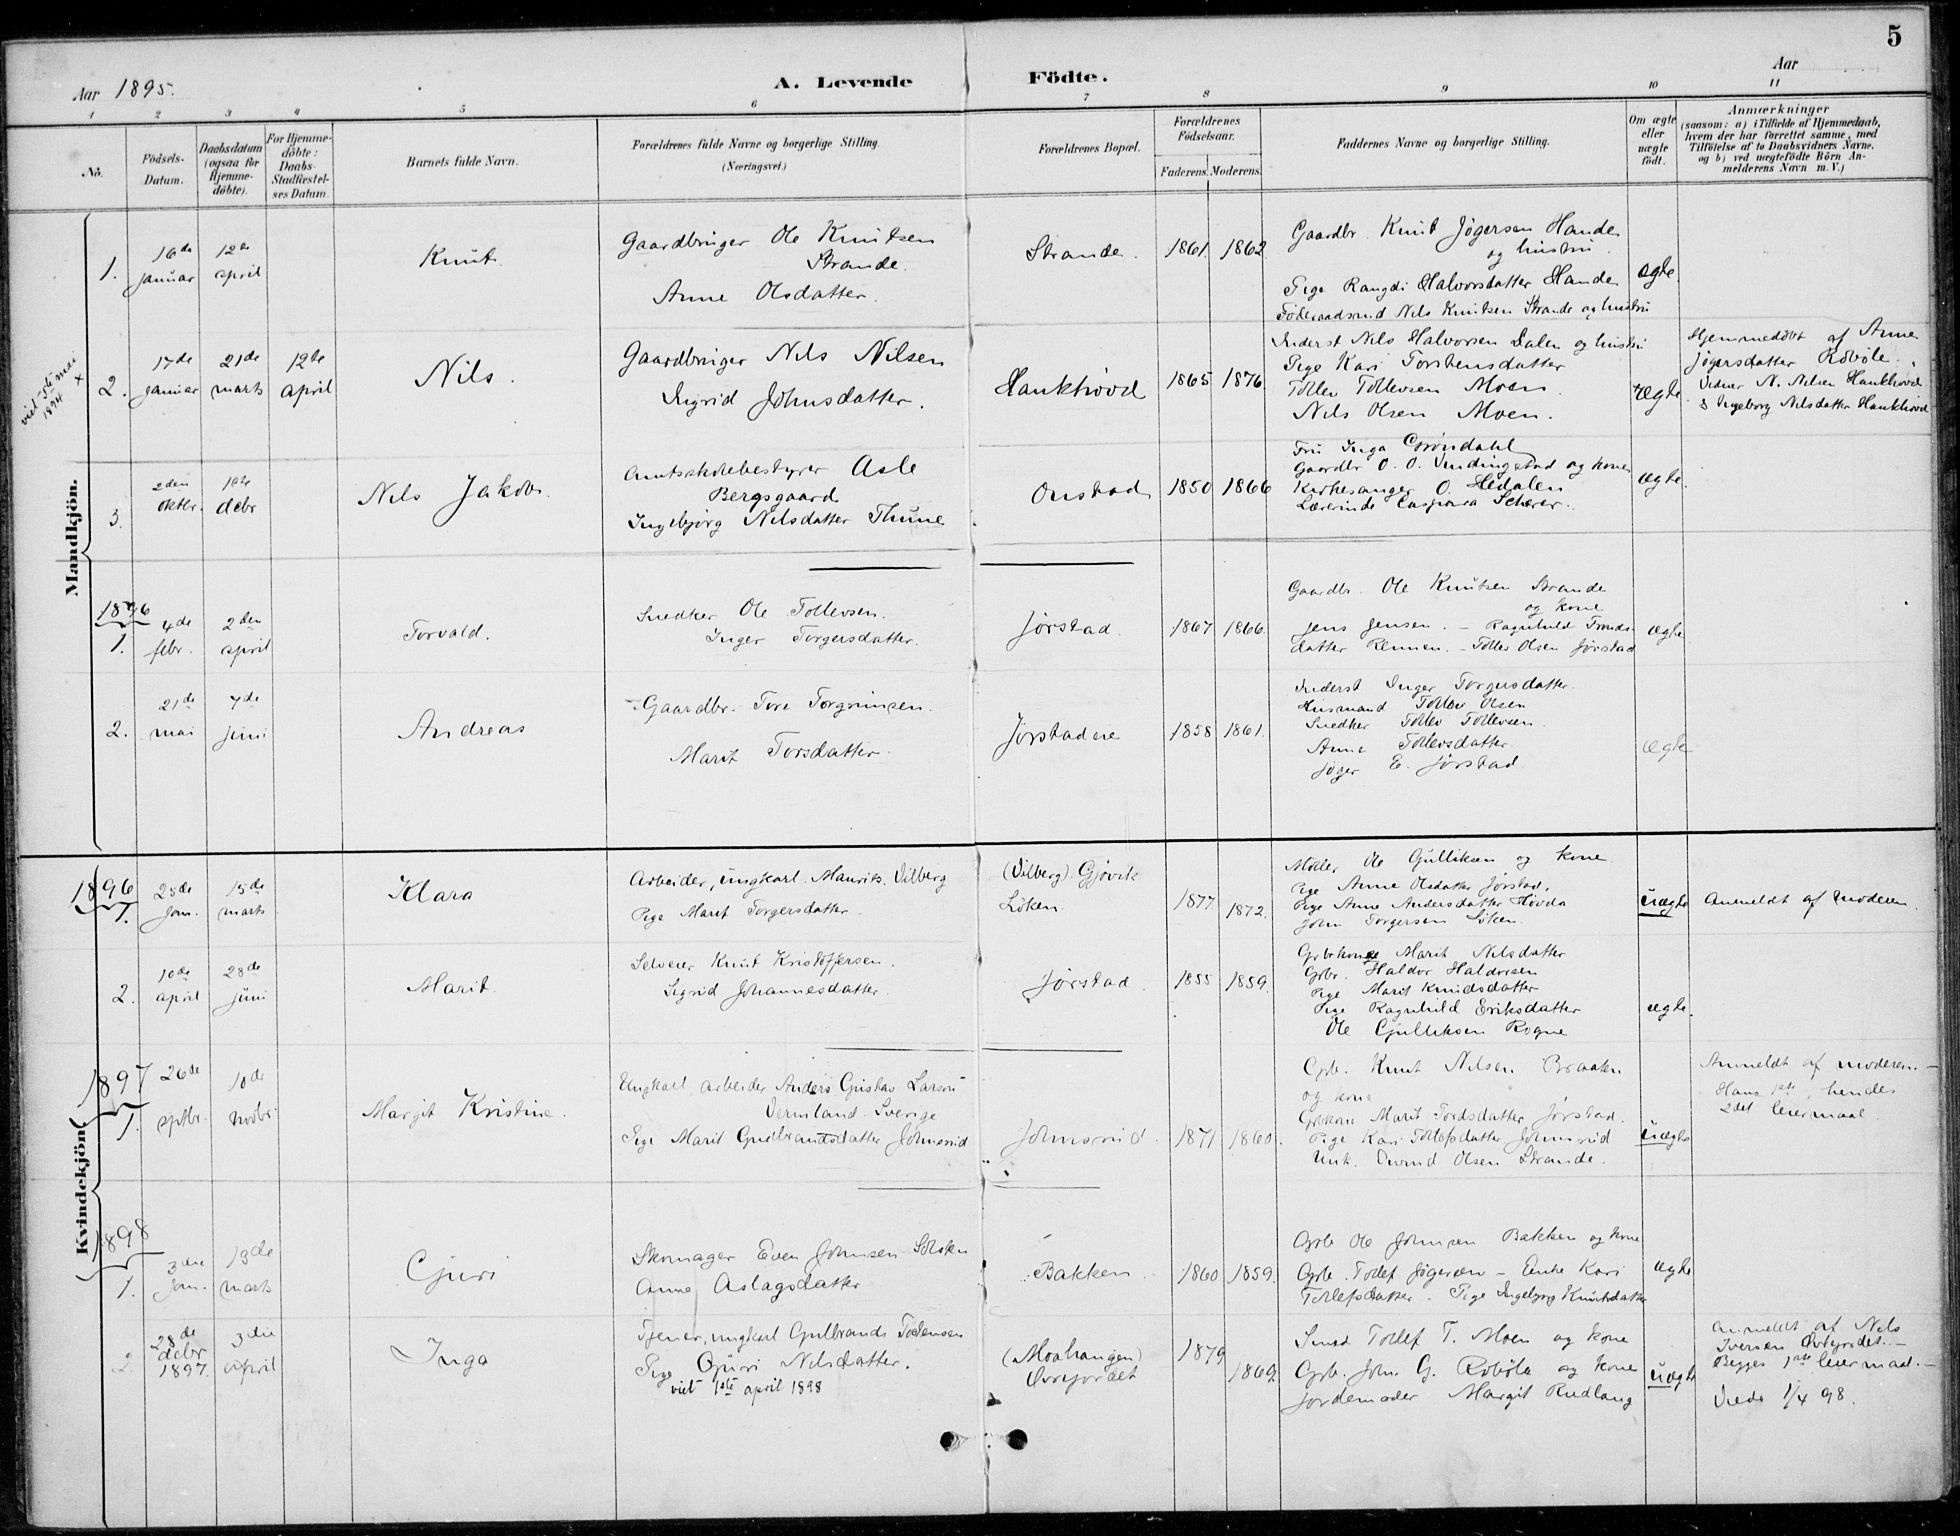 5
Aar 1895.
A. Levende Födte.
Aar
1 2 3 4 5 6 7 8 9 10 11
No.
Födsels-
Datum.
Daabsdatum
(ogsaa for
Hjemme-
döbte).
For Hjemme-
döbte:
Daabs-
Stadfæstel-
ses Datum.
Barnets fulde Navn.
Forældrenes fulde Navne og borgerlige Stilling.
(Næringsvei.)
Forældrenes Bopæl.
Forældrenes
Födselsaar.
Faderens. Moderens.
Faddernes Navne og borgerlige Stilling.
Om ægte
eller
uægte
födt.
Anmærkninger
(saasom: a) i Tilfælde af Hjemmedaab,
hvem der har forrettet samme, med
Tilföielse af to Daabsvidners Navne,
og b) ved uægtefödte Börn An-
melderens Navn m. V.)
Mandkjön.
1.
16de
januar
12te
april
Knut
Gaardbruger Ole Knutsen
Strande.
Anne Olsdatter.
Strande.
1861. 1862
Gaardbr. Knut Jøgersen Hande
og hustru
Pige Rangdi Halvorsdatter Hande
Føderaadsmd Nils Knutsen Strande og hustru
ægte
viet 5te mai
1894
x
2.
17de
januar
21de
marts
12te
april
Nils.
Gaardbruger Nils Nilsen
Ingrid Johnsdatter.
Haukhøvd
1865 1876
Inderst Nils Halvorsen Dalen og hustru
Pige Kari Torstensdatter
Tollev Tollevsen Moen
Nils Olsen Moen.
ægte
Hjemmedöbt af Anne
Jøgersdatter Robøle.
Vidner N. Nilsen Haukhøvd
& Ingeborg Nilsdatter Haukhøvd
3.
2den
oktbr.
1ste
debr
Nils Jakob.
Amtsskolebestyrer Asle
Bergsgaard
Ingebjørg Nilsdatter Thune
Onstad
1850 1866
Fru Inga Grøndahl
Gaardbr O. O. Vindingstad og kone
Kirkesanger O. Hedalen
Lærerinde Caspara Scherer.
ægte.
1896
1.
4de
febr.
2den
april
Torvald.
Snedker Ole Tollevsen.
Inger Torgersdatter.
Jørstad.
1867 1866.
Gaardbr. Ole Knutsen Strande
og kone
Jens Jensen. – Ragnhild Tronds-
datter Rennen. – Tollev Olsen Jørstad
ægte
2.
21de
mai
7de
juni
Andreas
Gaardbr. Tore Torgrimsen.
Marit Torsdatter.
Jørstadeie
1858 1861.
Inderst Inger Torgersdatter.
Husmand Tollev Olsen
Snedker Tollev Tollevsen.
Anne Tollevsdatter.
Jøger E. Jørstad
ægte
Kvindekjön
1896
1.
25de
Jan.
15de
marts
Klara
Arbeider, ungkarl Maurits. Vilberg
Pige Marit Torgersdatter.
(Vilberg). Gjøvik
Löken.
1877. 1872.
Møller Ole Gulliksen og kone
Pige Anne Olsdatter Jørstad.
Pige Anne Andersdatter Høvda
John Torgersen Löken.
uægte
Anmeldt af moderen.
2.
10de
april
28de
juni
Marit.
Selveier Knut Kristoffersen.
Sigrid Johannesdatter.
Jørstad.
1855 1859.
Gbrkone Marit Nilsdatter
Gbr. Haldor Haldorsen
Pige Marit Knudsdatter
Pige Ragnhild Eriksdatter
Ole Gulliksen Rogne
ægte.
1897
1.
26de
sptbr.
10de
novbr.
Margit Kristine.
Ungkarl arbeider Anders Gustav Larson
Vermland. Sverige
Pige Marit Gudbrandsdatter Johnsrud
Johnsrud.
1871 1860.
Gbr. Knut Nilsen Braaten
og kone
Gbkone Marit Tordsdatter Jørstad.
Pige Kari Tollefsdatter Johnsrud
Unk. Eivind Olsen Strande.
uægte
Anmeldt af moderen.–
Hans 1ste, hendes
2det leiermaal
1898
1.
3die
Jan.
13de
marts
Gjuri
Skomager Even Johnsen
Anne Aslagsdatter
Bakken.
1860 1859.
Gbr Ole Johnsen Bakken og kone
Gbr. Tollef Jøgersen – Enke Kari
Tollefsdatter – Pige Ingebjørg Knutsdatter
ægte
2
28de
debr
1897.
3die
April
Inga
Tjener, ungkarl Gulbrand
Pige Gjuri Nilsdatter.
viet 1ste april 1898
(Moahaugen)
Øvrejordet
1879 1869.
Smed Tollef T. Moen og kone
Gbr. John G. Robøle og kone
Jordemoder Margit Rudlang
uægte
Anmeldt af Nils
Iversen Øvrejordet.–
Begges 1ste leiermaal.–
Viede 1/4 98.